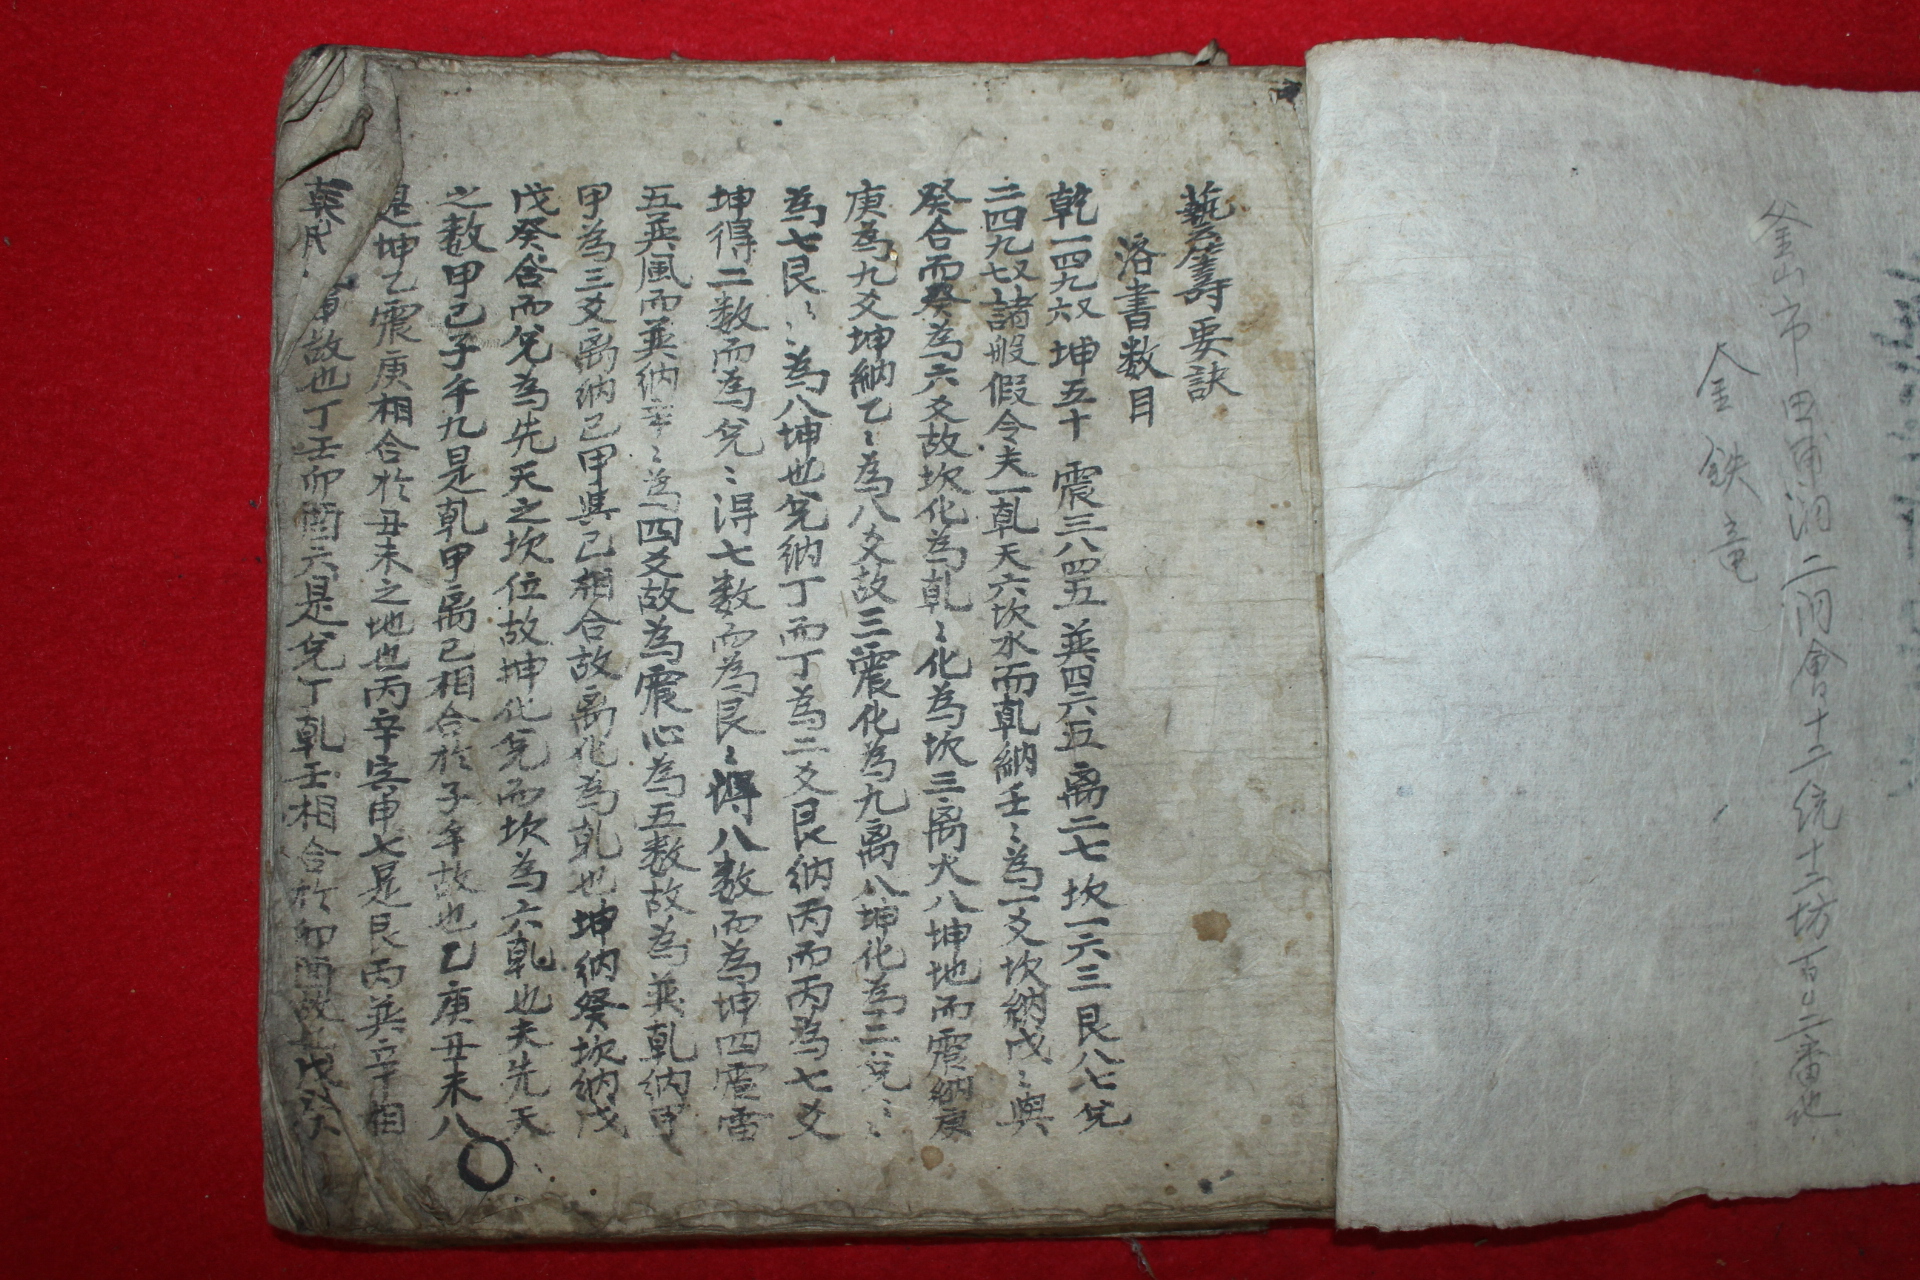 釜山市田甫洞二洞會十二統十二坊百二番地
金鉄竜
藝産壽要訣
洛書数目
乾一四九六㕛 坤五十 震三八四五 巽四六五 离二七 坎一六三 艮八七 兊
二四九七㕛諸般假令夫一乹天六坎水而乹納壬〻為一爻坎納戊〻與
癸合而癸為六爻故坎化為乹〻化為坎三离火八坤地而震納庚
庚為九爻坤納乙〻為八爻故三震化為九离八坤化為二兊〻
為七艮〻為八坤也兊納丁而丁為二爻艮納丙而丙為七爻
坤得二数而為兊〻淂七数而為艮〻得八数而為坤四震雷
五巽風而巽納辛〻為四爻故為震心為五数故為巽乹納甲
甲為三爻离納己甲與己相合故离化為乹也坤納癸坎納戊
戊癸合而兊為先天之坎位故坤化兊而坎為六乹也夫先天
之数甲己子午九是乹甲离己相合於子午故也乙庚丑未八
是坤乙震庚相合於丑未之地也丙辛寅申七是艮丙巽辛相
故也丁壬卯酉六是兊丁乹壬相合於卯酉故也戊癸